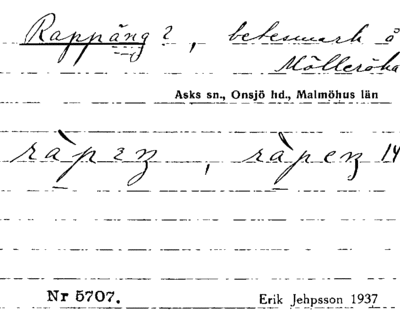 Rappäng ?, betesmark å
Mölleröka
Asks sn., Onsjö hd., Malmöhus län
14
Nr 5707.
Erik Jehpsson 1937